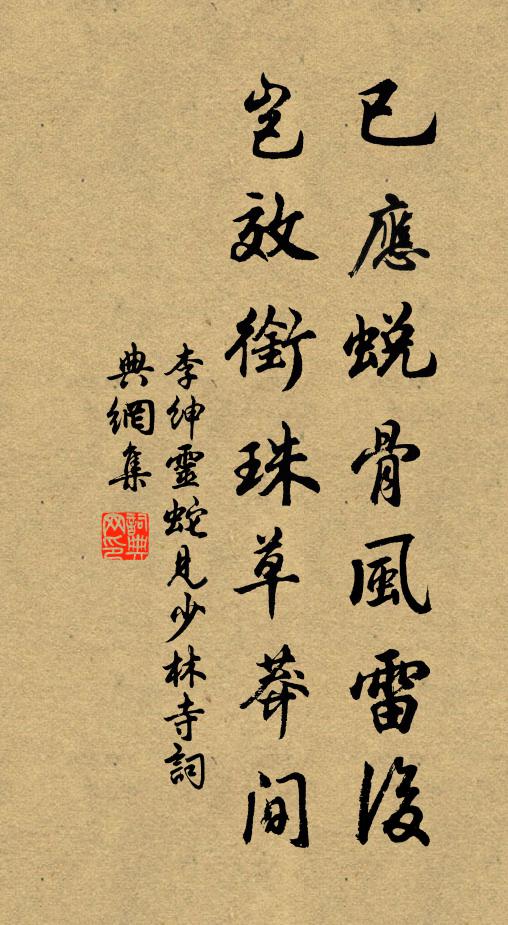 已應蛻骨風雷後
豈效銜珠草莽間
李紳靈蛇見少林寺詞
典網集
詞典網印